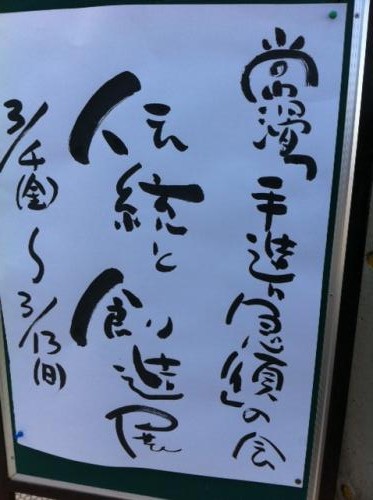 常滑「手造り急須」の会
伝統と創造展
3/4(金)〜3/13(日)